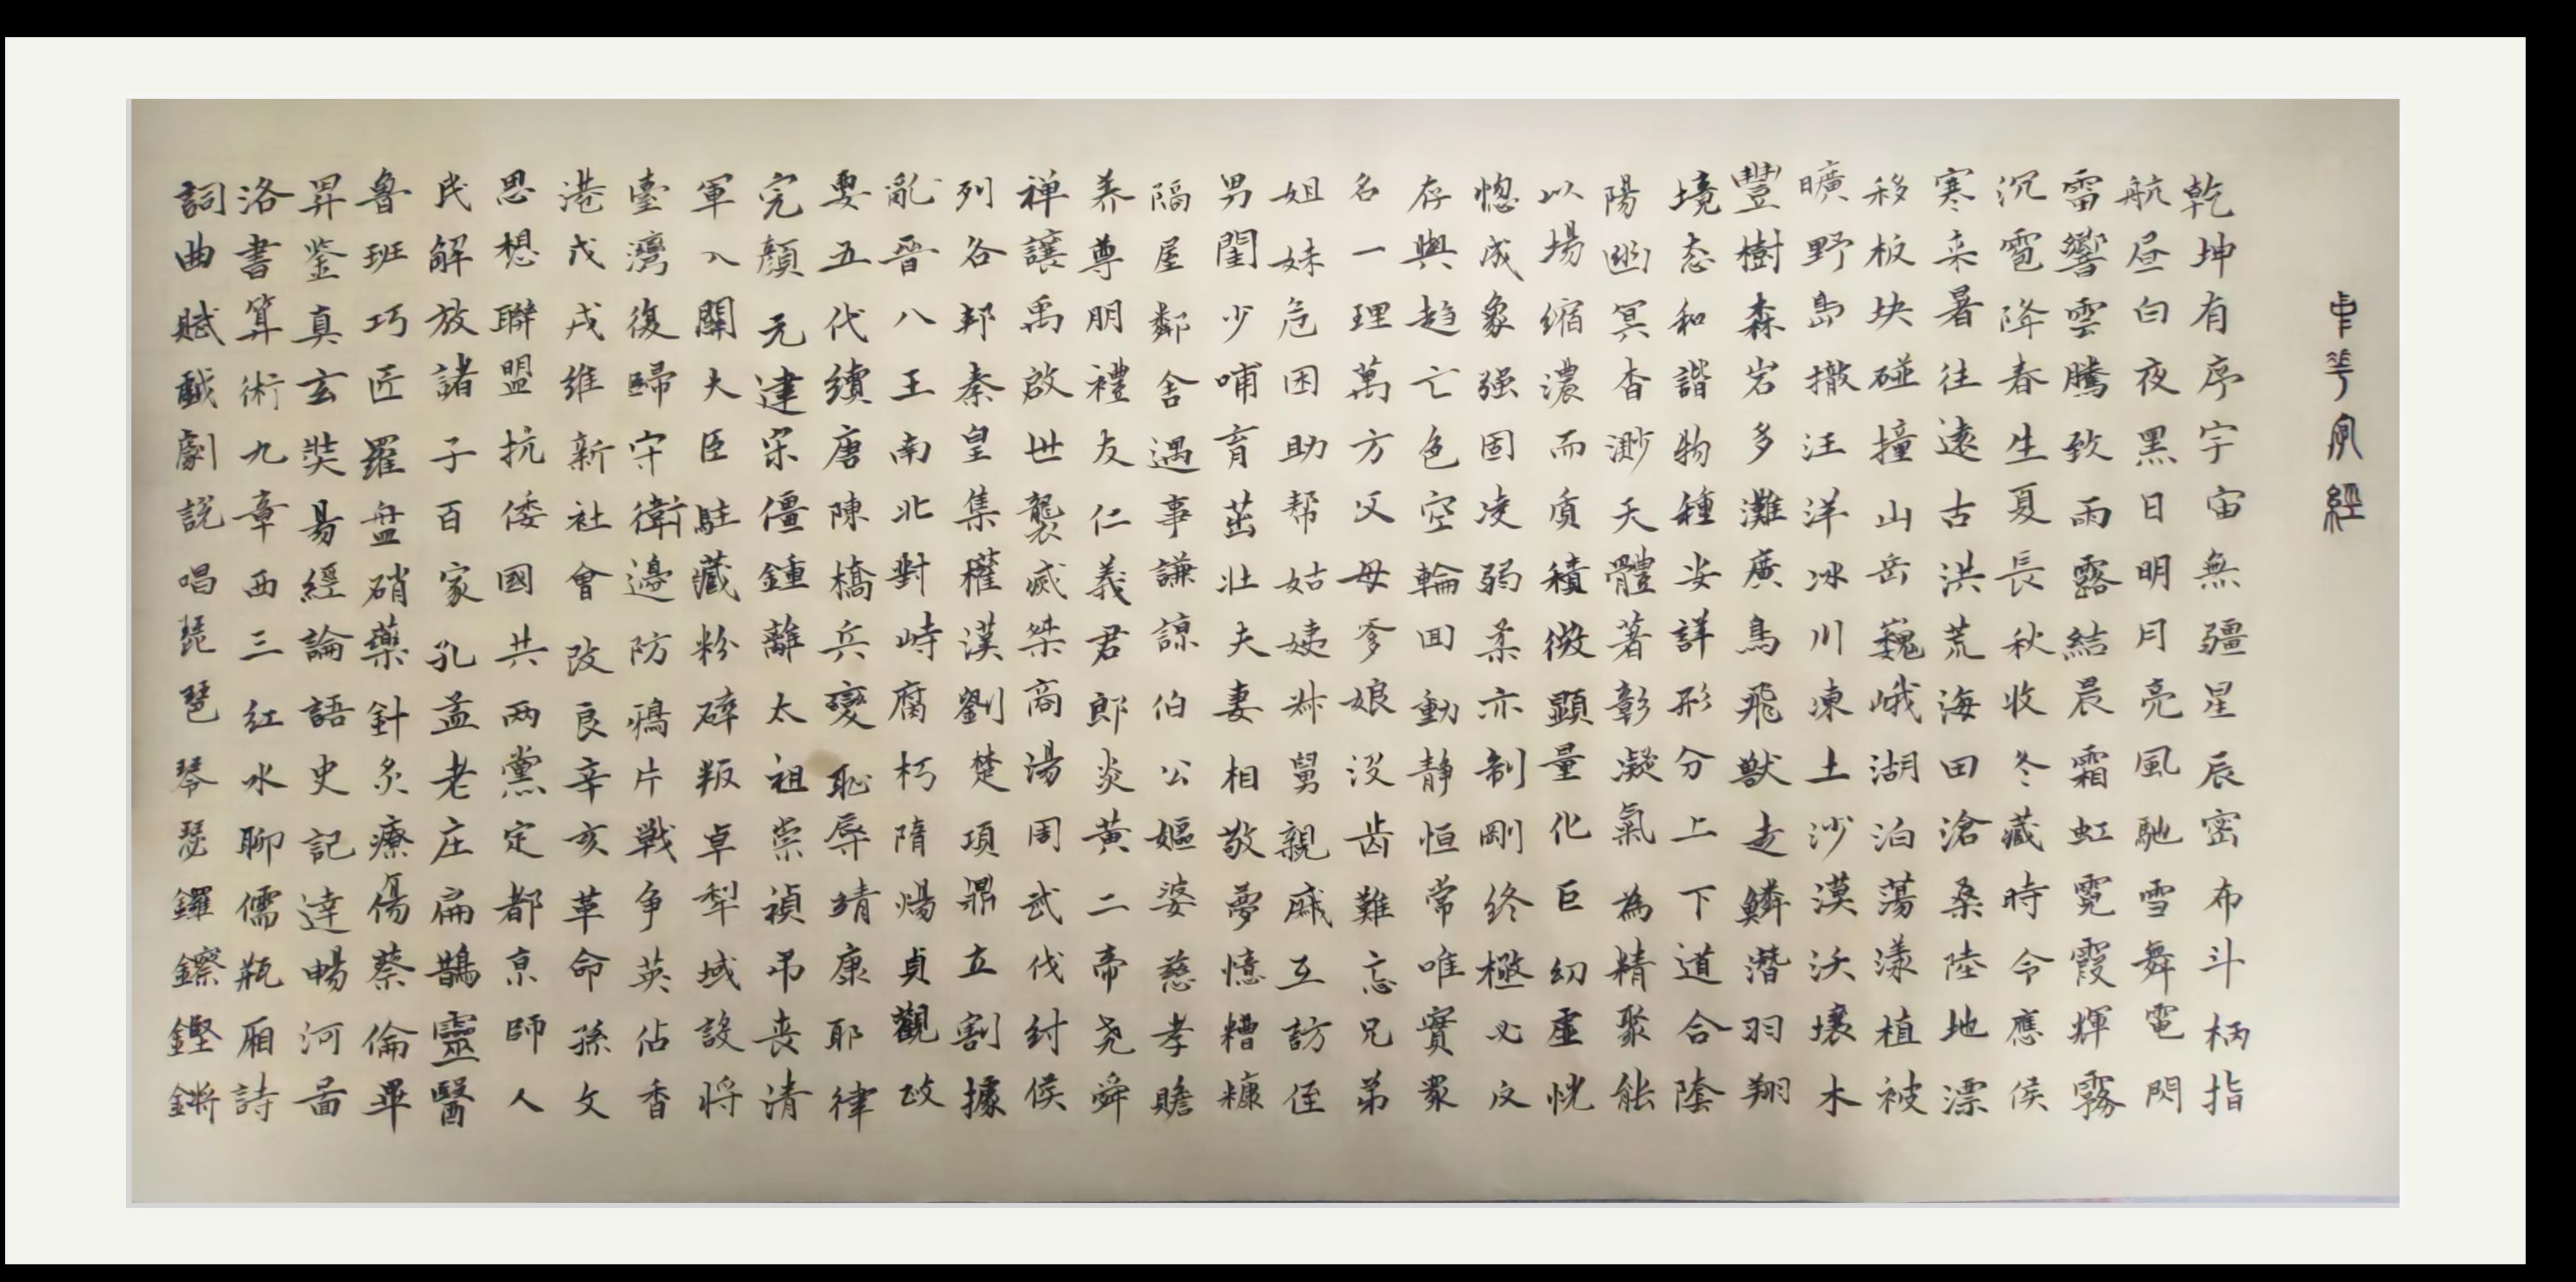 中華字經
乾坤有序宇宙無疆星辰密布斗柄指
航昼白夜黑日明月亮風馳雪舞電閃
雷響雲騰致雨露結晨霜虹霓霞輝霧
沉雹降春生夏長秋收冬藏時令應侯
寒来暑往遠古洪荒海田滄桑陸地漂
移板块碰撞山岳巍峨湖泊蕩漾植被
曠野島撒汪洋冰川凍土沙漠沃壤木
豐樹森岩多灘廣鳥飛獸走鱗潛羽翔
境态和諧物種安詳形分上下道合陰
陽幽冥杳渺天體著彰凝氣為精聚能
以場縮濃而质積微顯量化巨幻虛恍
惚成象强固凌弱柔亦制剛終極必反
存與趋亡色空輪回動静恒常唯實衆
名一理萬方父母爹娘没齿難忘兄弟
姐妹危困助帮姑姨叔舅親戚互訪侄
男閨少哺育茁壮夫妻相敬夢憶糟糠
隔屋鄰舍遇事謙諒伯公嫗婆慈孝贍
养尊朋禮友仁義君郎炎黃二帝尧舜
禅讓禹啟世襲滅桀商湯周武伐紂侯
列各邦秦皇集權漢劉楚項鼎立割據
亂晉八王南北對峙腐朽隋煬貞觀政
要五代續唐陳橋兵變恥辱靖康耶律
完顏元建宋僵鍾離太祖崇禎吊丧清
軍入關大臣駐藏粉碎叛卓犁域設将
臺灣復歸守衛邊防鴉片戦争英佔香
港戊戌維新社會改良辛亥革命孫文
思想聯盟抗倭國共两黨定都京師人
民解放諸子百家孔孟老庄扁鵲靈醫
魯班巧匠羅盘硝藥針炙療傷蔡倫畢
昇鉴真玄奘易經論語史記達暢河图
洛書算術九章西三紅水聊儒瓶厢詩
詞曲賦戲劇説唱琵琶琴瑟鑼鑔鏗鏘